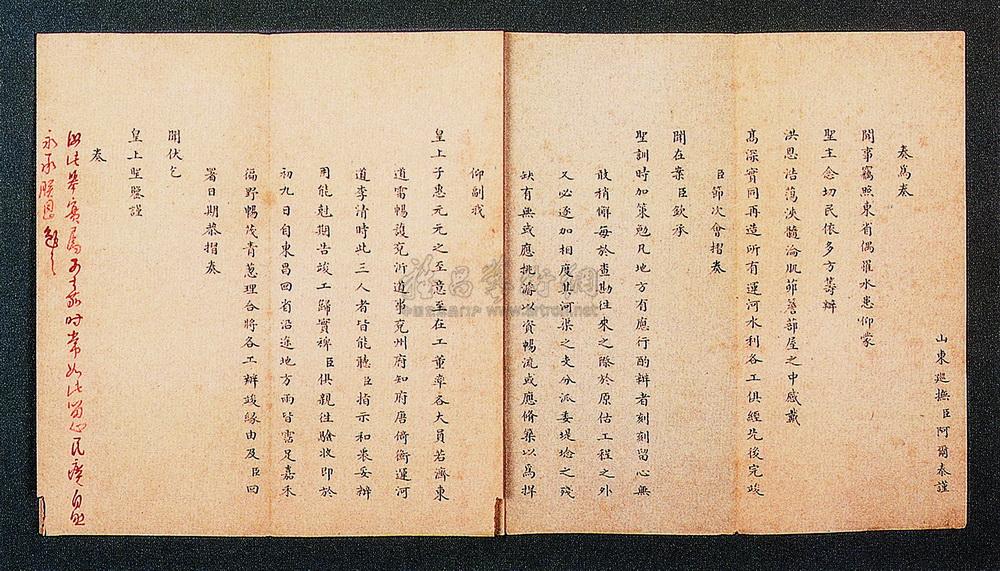 山東巡撫臣阿爾泰謹
奏爲奏
聞事竊照東省偶罹水患仰蒙
聖主念切民依多方籌辦
洪恩浩蕩浹髓淪肌蔀簷蔀屋之中感戴
高深實同再造所有運河水利各工俱經先後完竣
臣節次會摺奏
聞在案臣欽承
聖訓時加策勉凡地方有應行酌辦者刻刻留心無
敢稍懈每於查勘往來之際於原估工程之外
又必逐加相度其河渠之支分派委堤埝之殘
缺有無或應挑濬以資暢流或應脩築以爲捍
仰副我
皇上子惠元元之至意至在工董率各大員若濟東
道雷暢護兗沂道事兗州府知府唐倚衡運河
道李清時此三人者皆能聽臣指示和衷妥辦
用能剋期告竣工歸實裨臣俱親往驗收即於
初九日自東昌回省沿途地方雨皆霑足嘉禾
徧野暢茂青葱理合將各工辦竣緣由及臣回
署日期恭摺奏
聞伏乞
皇上聖鑒謹
奏
此舉實屬可嘉時常如此留心民瘼自
永承朕恩勉之